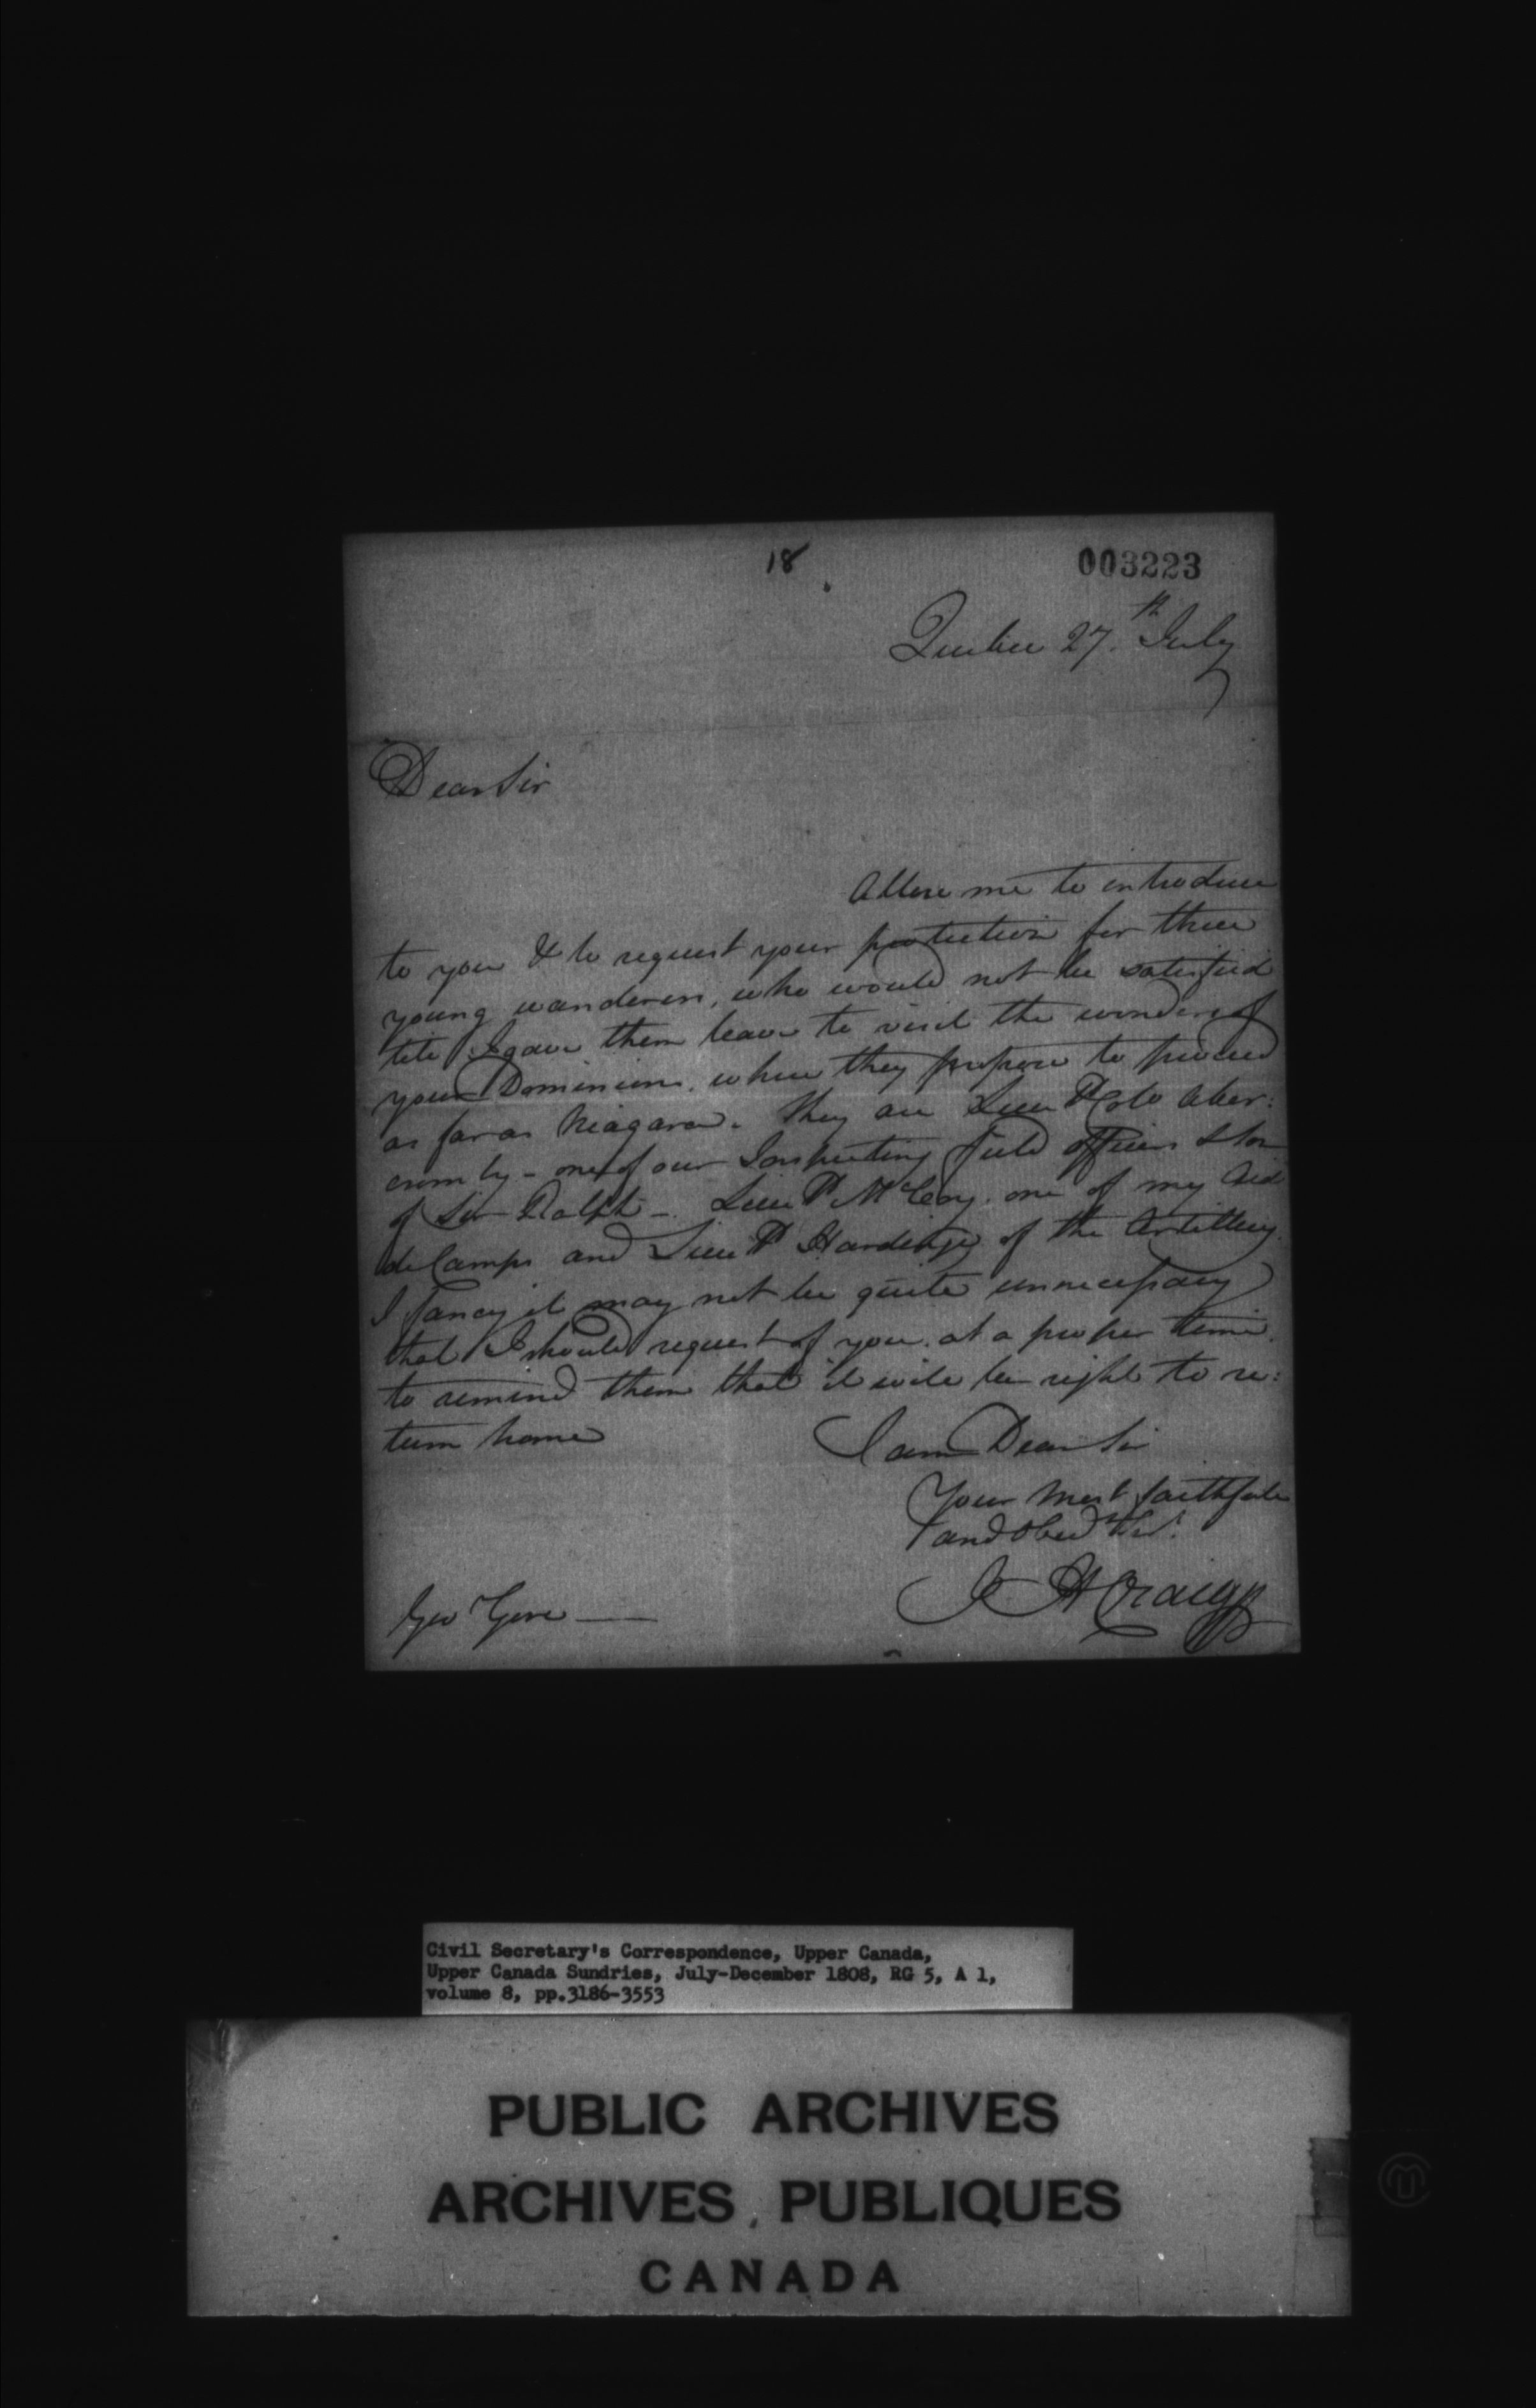 18
003223
Quebec 27.th July
Dear Sir
Allow me to introduce
to you & to request your protection for three
young wanderers, who would not be satisfied
till I gave them leave to visit the wonders of
your Dominions, where they propose to proceed
as far as Niagara. They are Lieut Colo Aber:
cromby - one of our Inspecting Field officers & son
of Sir Ralph - Lieut McCoy. one of my Aid
de Camps and Lieut Hardinge of the Artillery.
I fancy it may not be quite unnecessary
that I should request of you, at a proper time,
to remind them that it will be right to re:
turn home
I am Dear Sir
Your most faithful
and Obedt Sert.
J H Craig
Gov Gore
Civil Secretary's Correspondence, Upper Canada,
Upper Canada Sundries, July-December 1808, RG 5, A 1,
volume 8, pp.3186-3553
PUBLIC ARCHIVES
ARCHIVES PUBLIQUES
CANADA